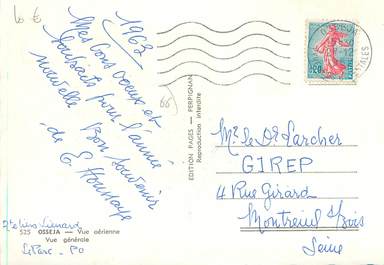 10 €
1963
Mes bons voeux et
souhaits pour l'année
nouvelle
Bon souvenir
de E
66
EDITION PAGES — PERPIGNAN
Reproduction interdite
0,20
Mr. le Dr Larcher
GIREP
4 Rue Girard
Montreuil s/Bois
Seine
525 OSSEJA — Vue aérienne
Vue générale
Le Parc - PO